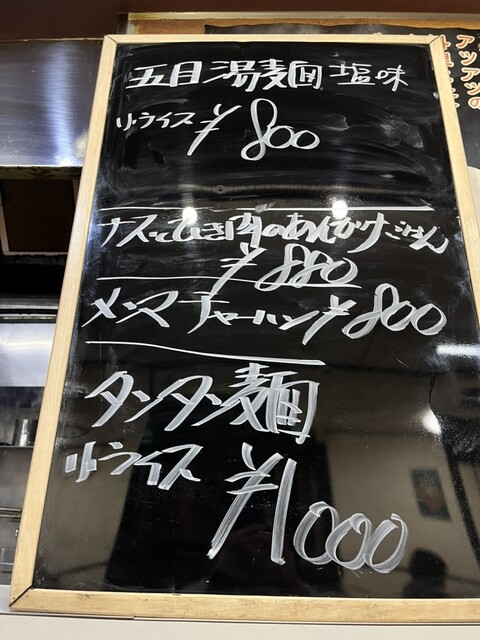 五目湯麺 塩味
小ライス ¥800
ナスとひき肉のあんかけごはん
¥880
メンマチャーハン ¥800
タンタン麺
小ライス ¥1000
アツアツの